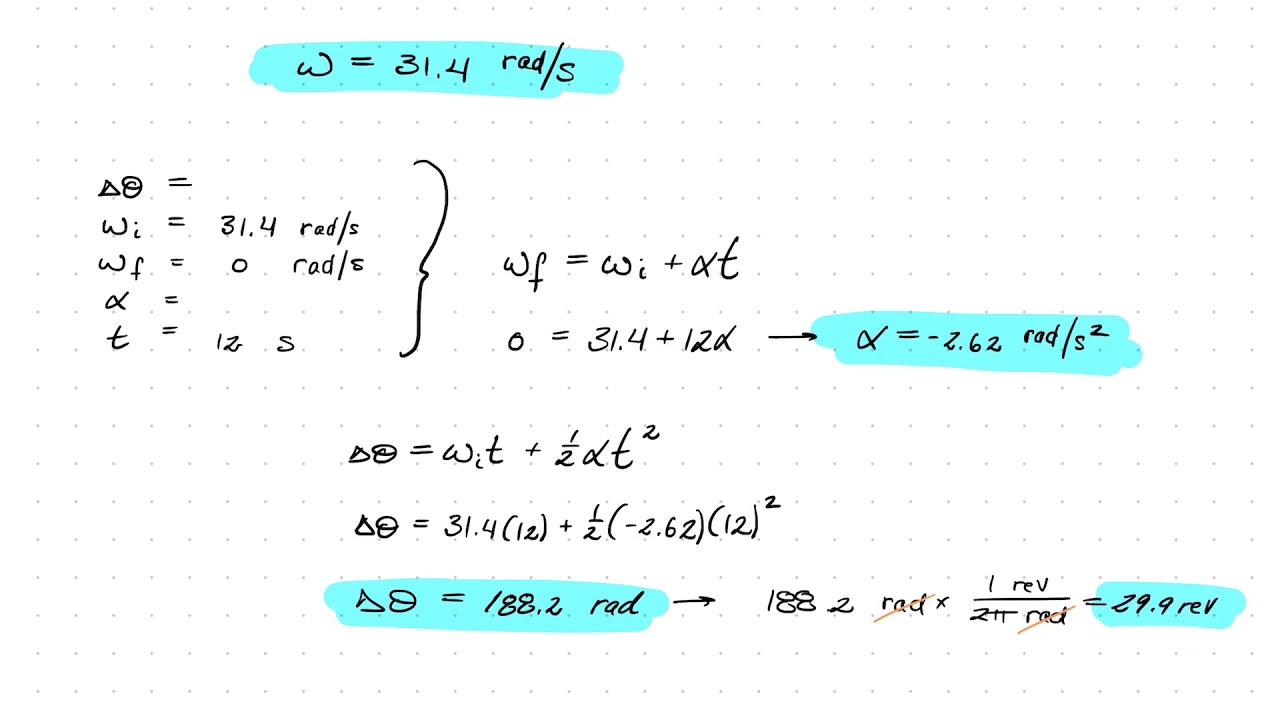 ω = 31.4 rad/s
Δθ =
ωi = 31.4 rad/s
ωf = 0 rad/s
α =
t = 12 s
ωf = ωi + αt
0 = 31.4 + 12α → α = -2.62 rad/s²
Δθ = ωit + ½αt²
Δθ = 31.4(12) + ½(-2.62)(12)²
Δθ = 188.2 rad → 188.2 rad × 1 rev / 2π rad = 29.9 rev